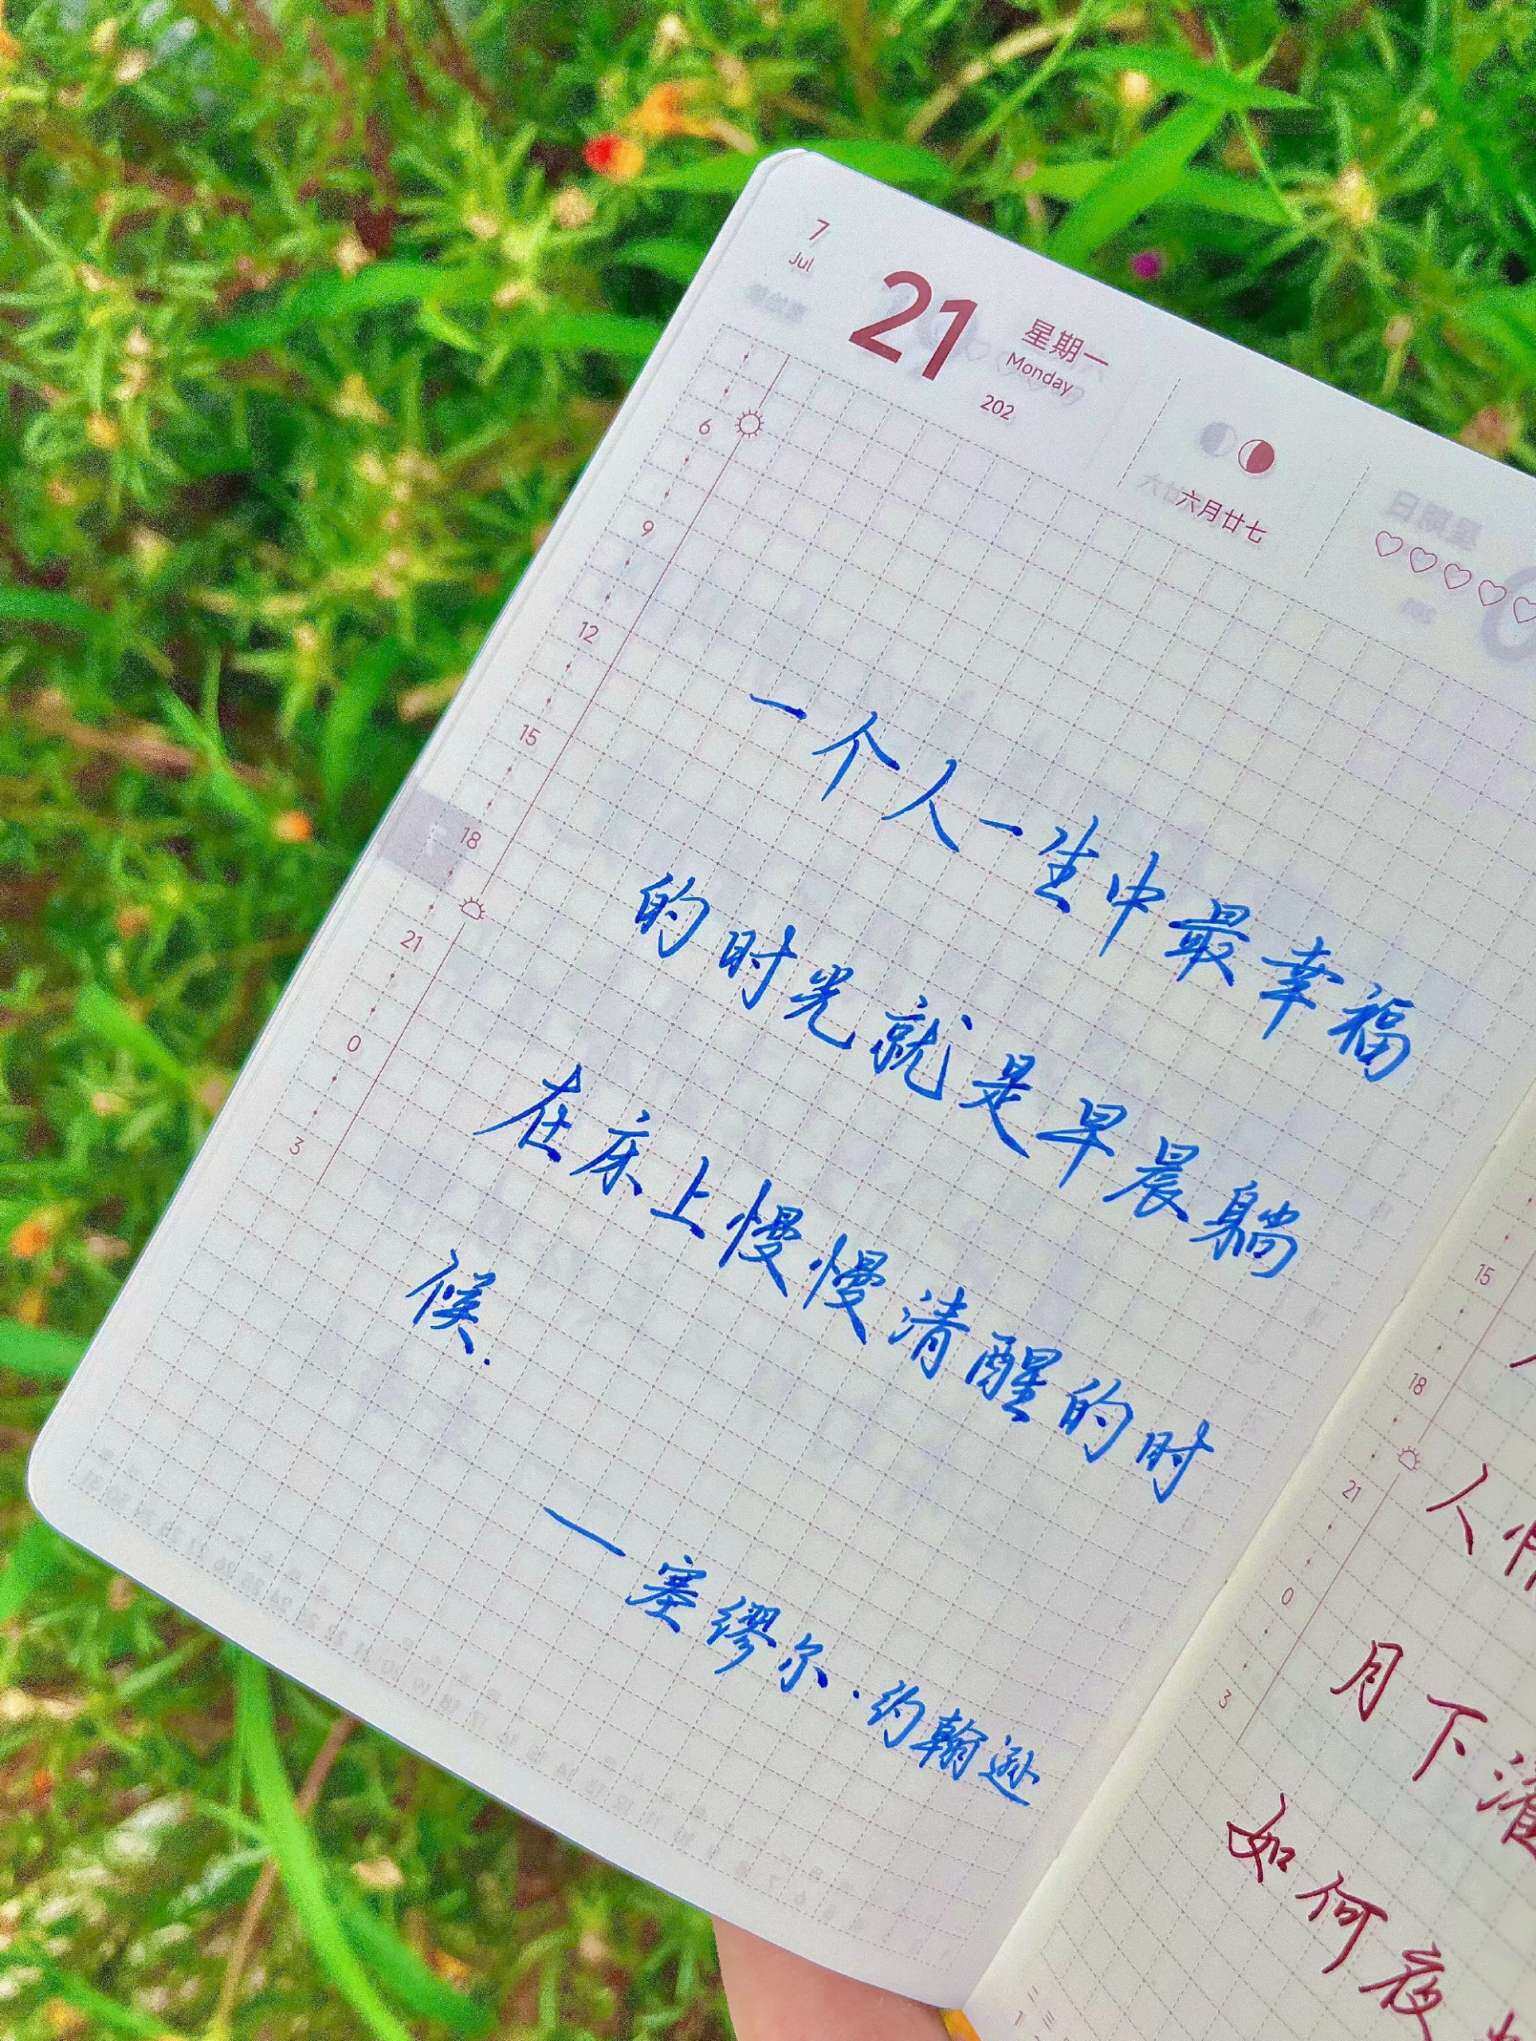 7
Jul
21
星期一
Monday
202
六月廿七
6
9
12
15
18
21
0
3
一个人一生中最幸福
的时光就是早晨躺
在床上慢慢清醒的时
候.
—塞缪尔·约翰逊
15
18
21
0
3
人情
月下
如何夜